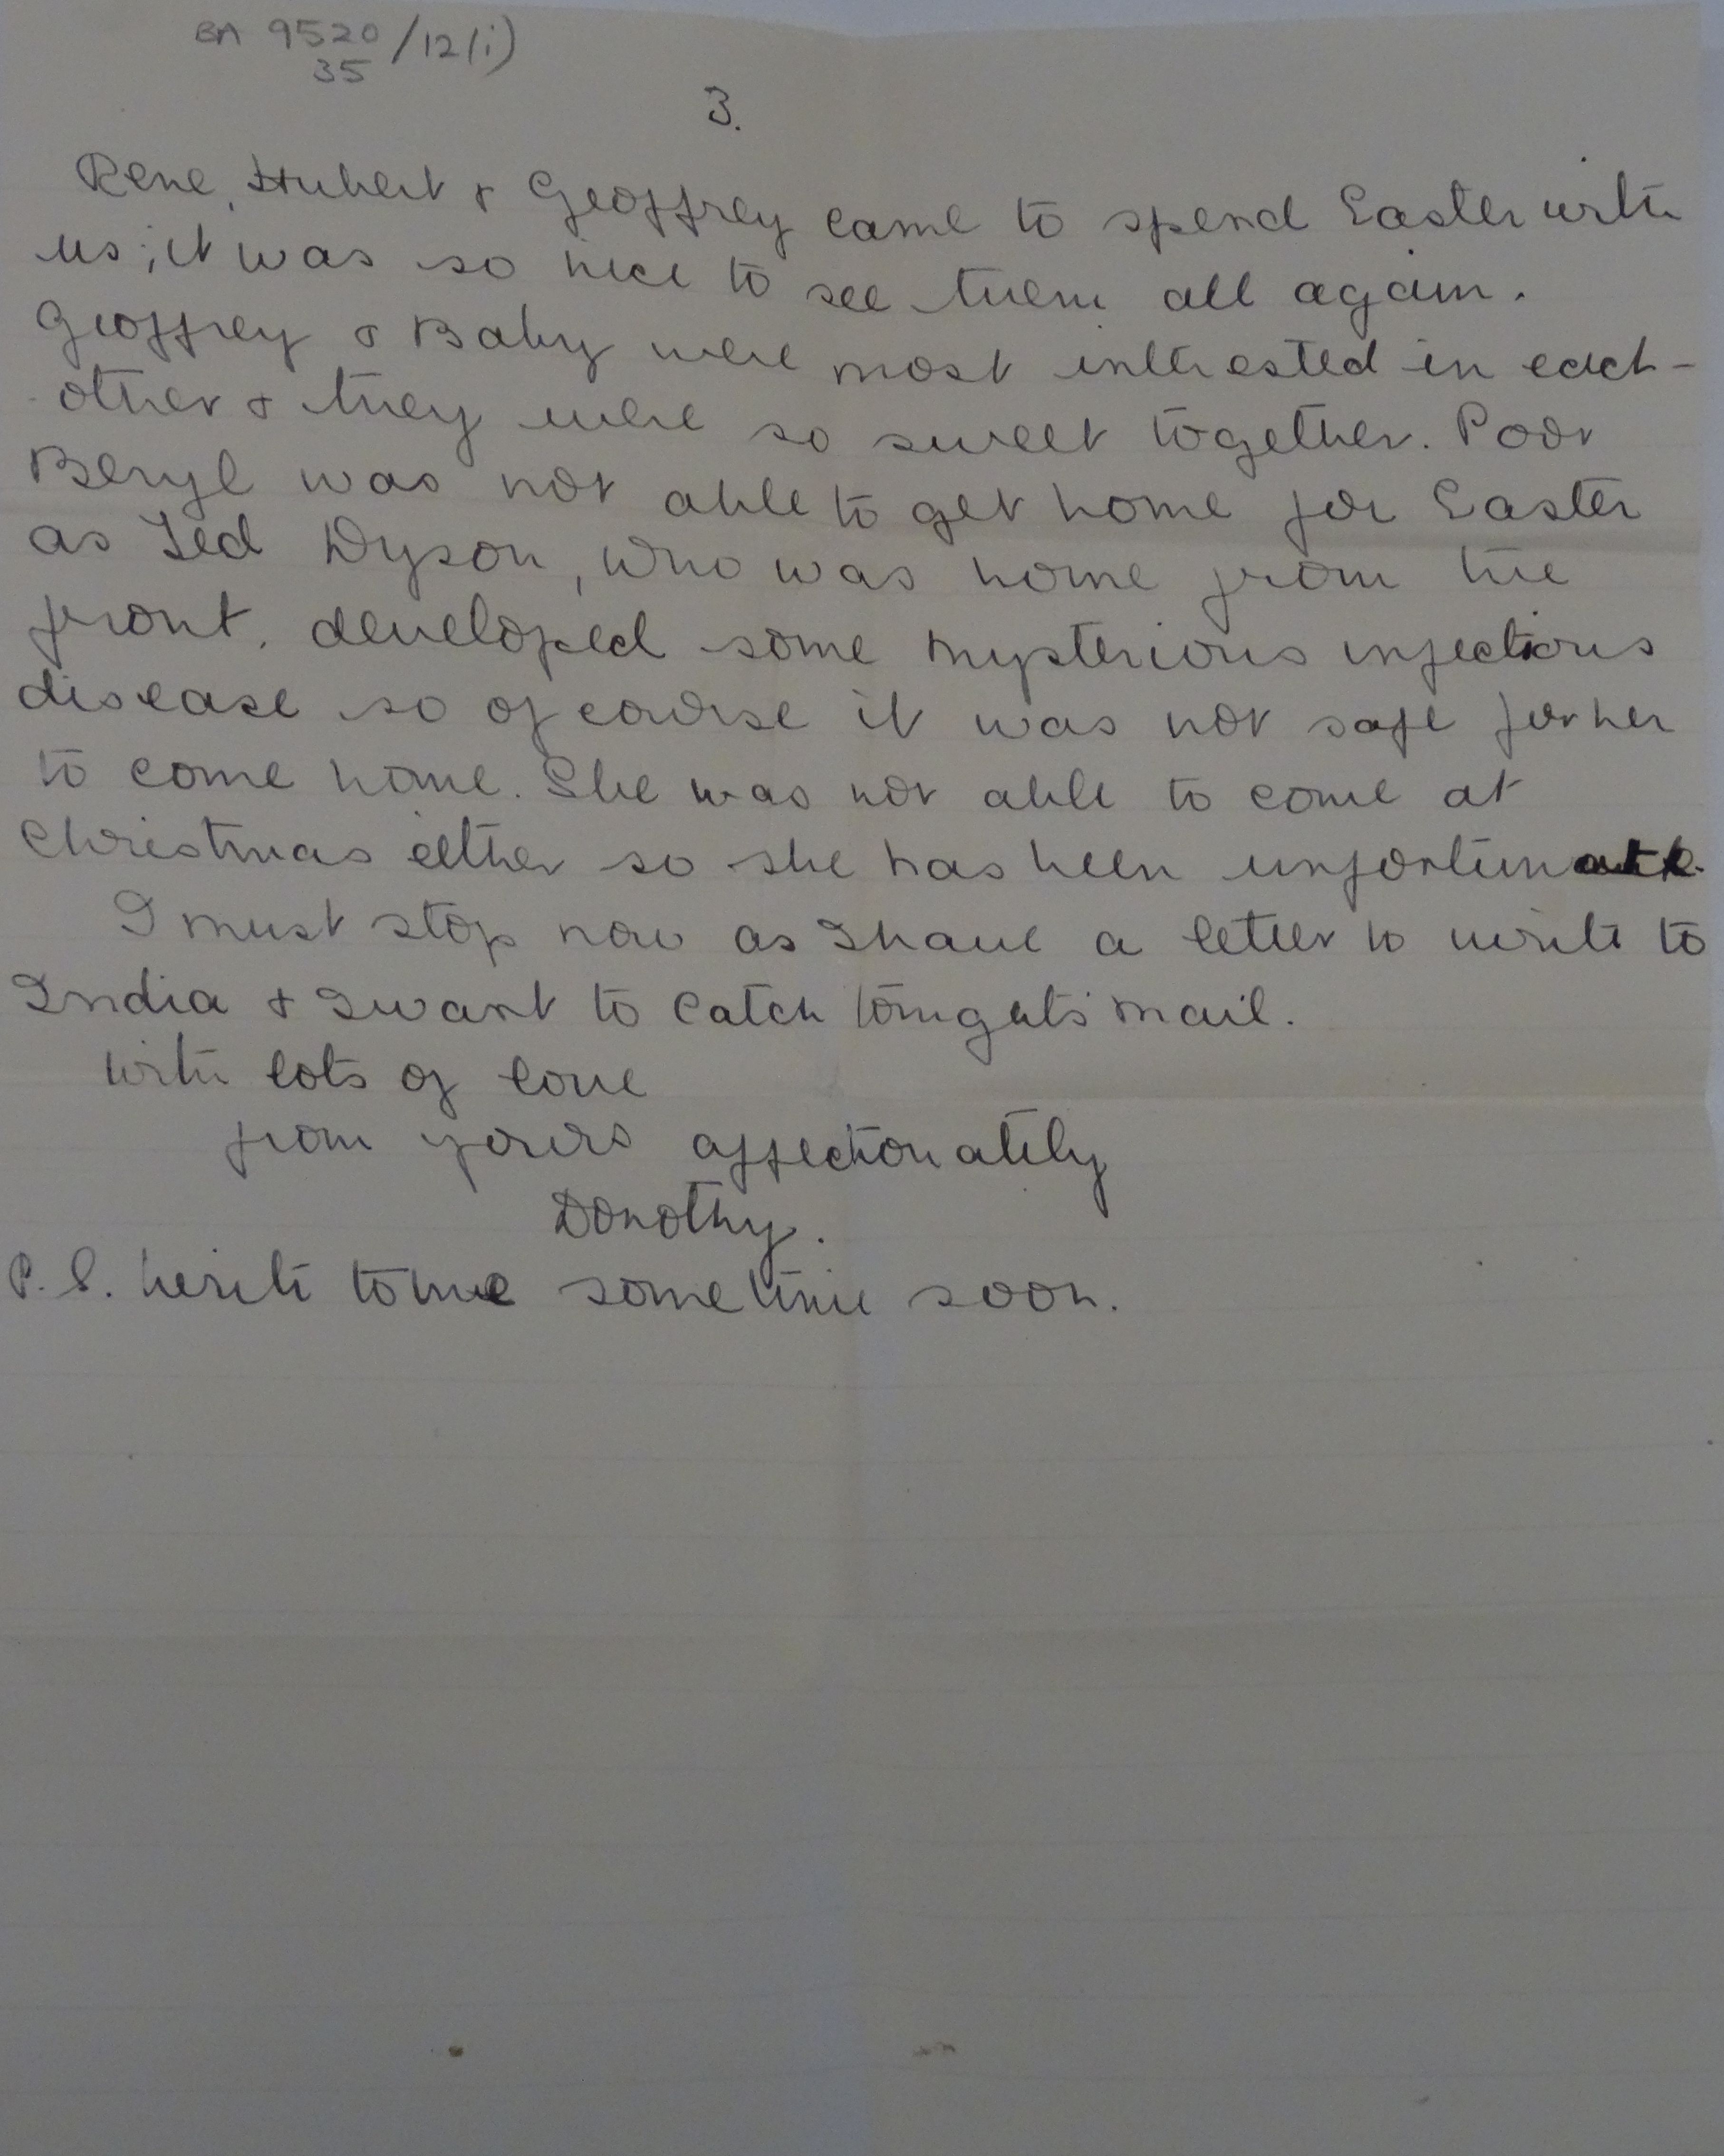 BA 9520/12(i)
35
3.
Rene, Hubert & Geoffrey came to spend Easter with
us; it was so nice to see them all again.
Geoffrey & Baby were most intrested in each-
other & they were so sweet together. Poor
Beryl was not able to get home for Easter
as Ted Dyson, who was home from the
front, developed some mysterious infectious
disease so of course it was not safe for her
to come home. She was not able to come at
Christmas either so she has been unfortunate.
I must stop now as I have a letter to write to
India & I want to catch tonights mail.
With lots of love
from yours affectionately
Dorothy.
P.S. Write to me sometime soon.